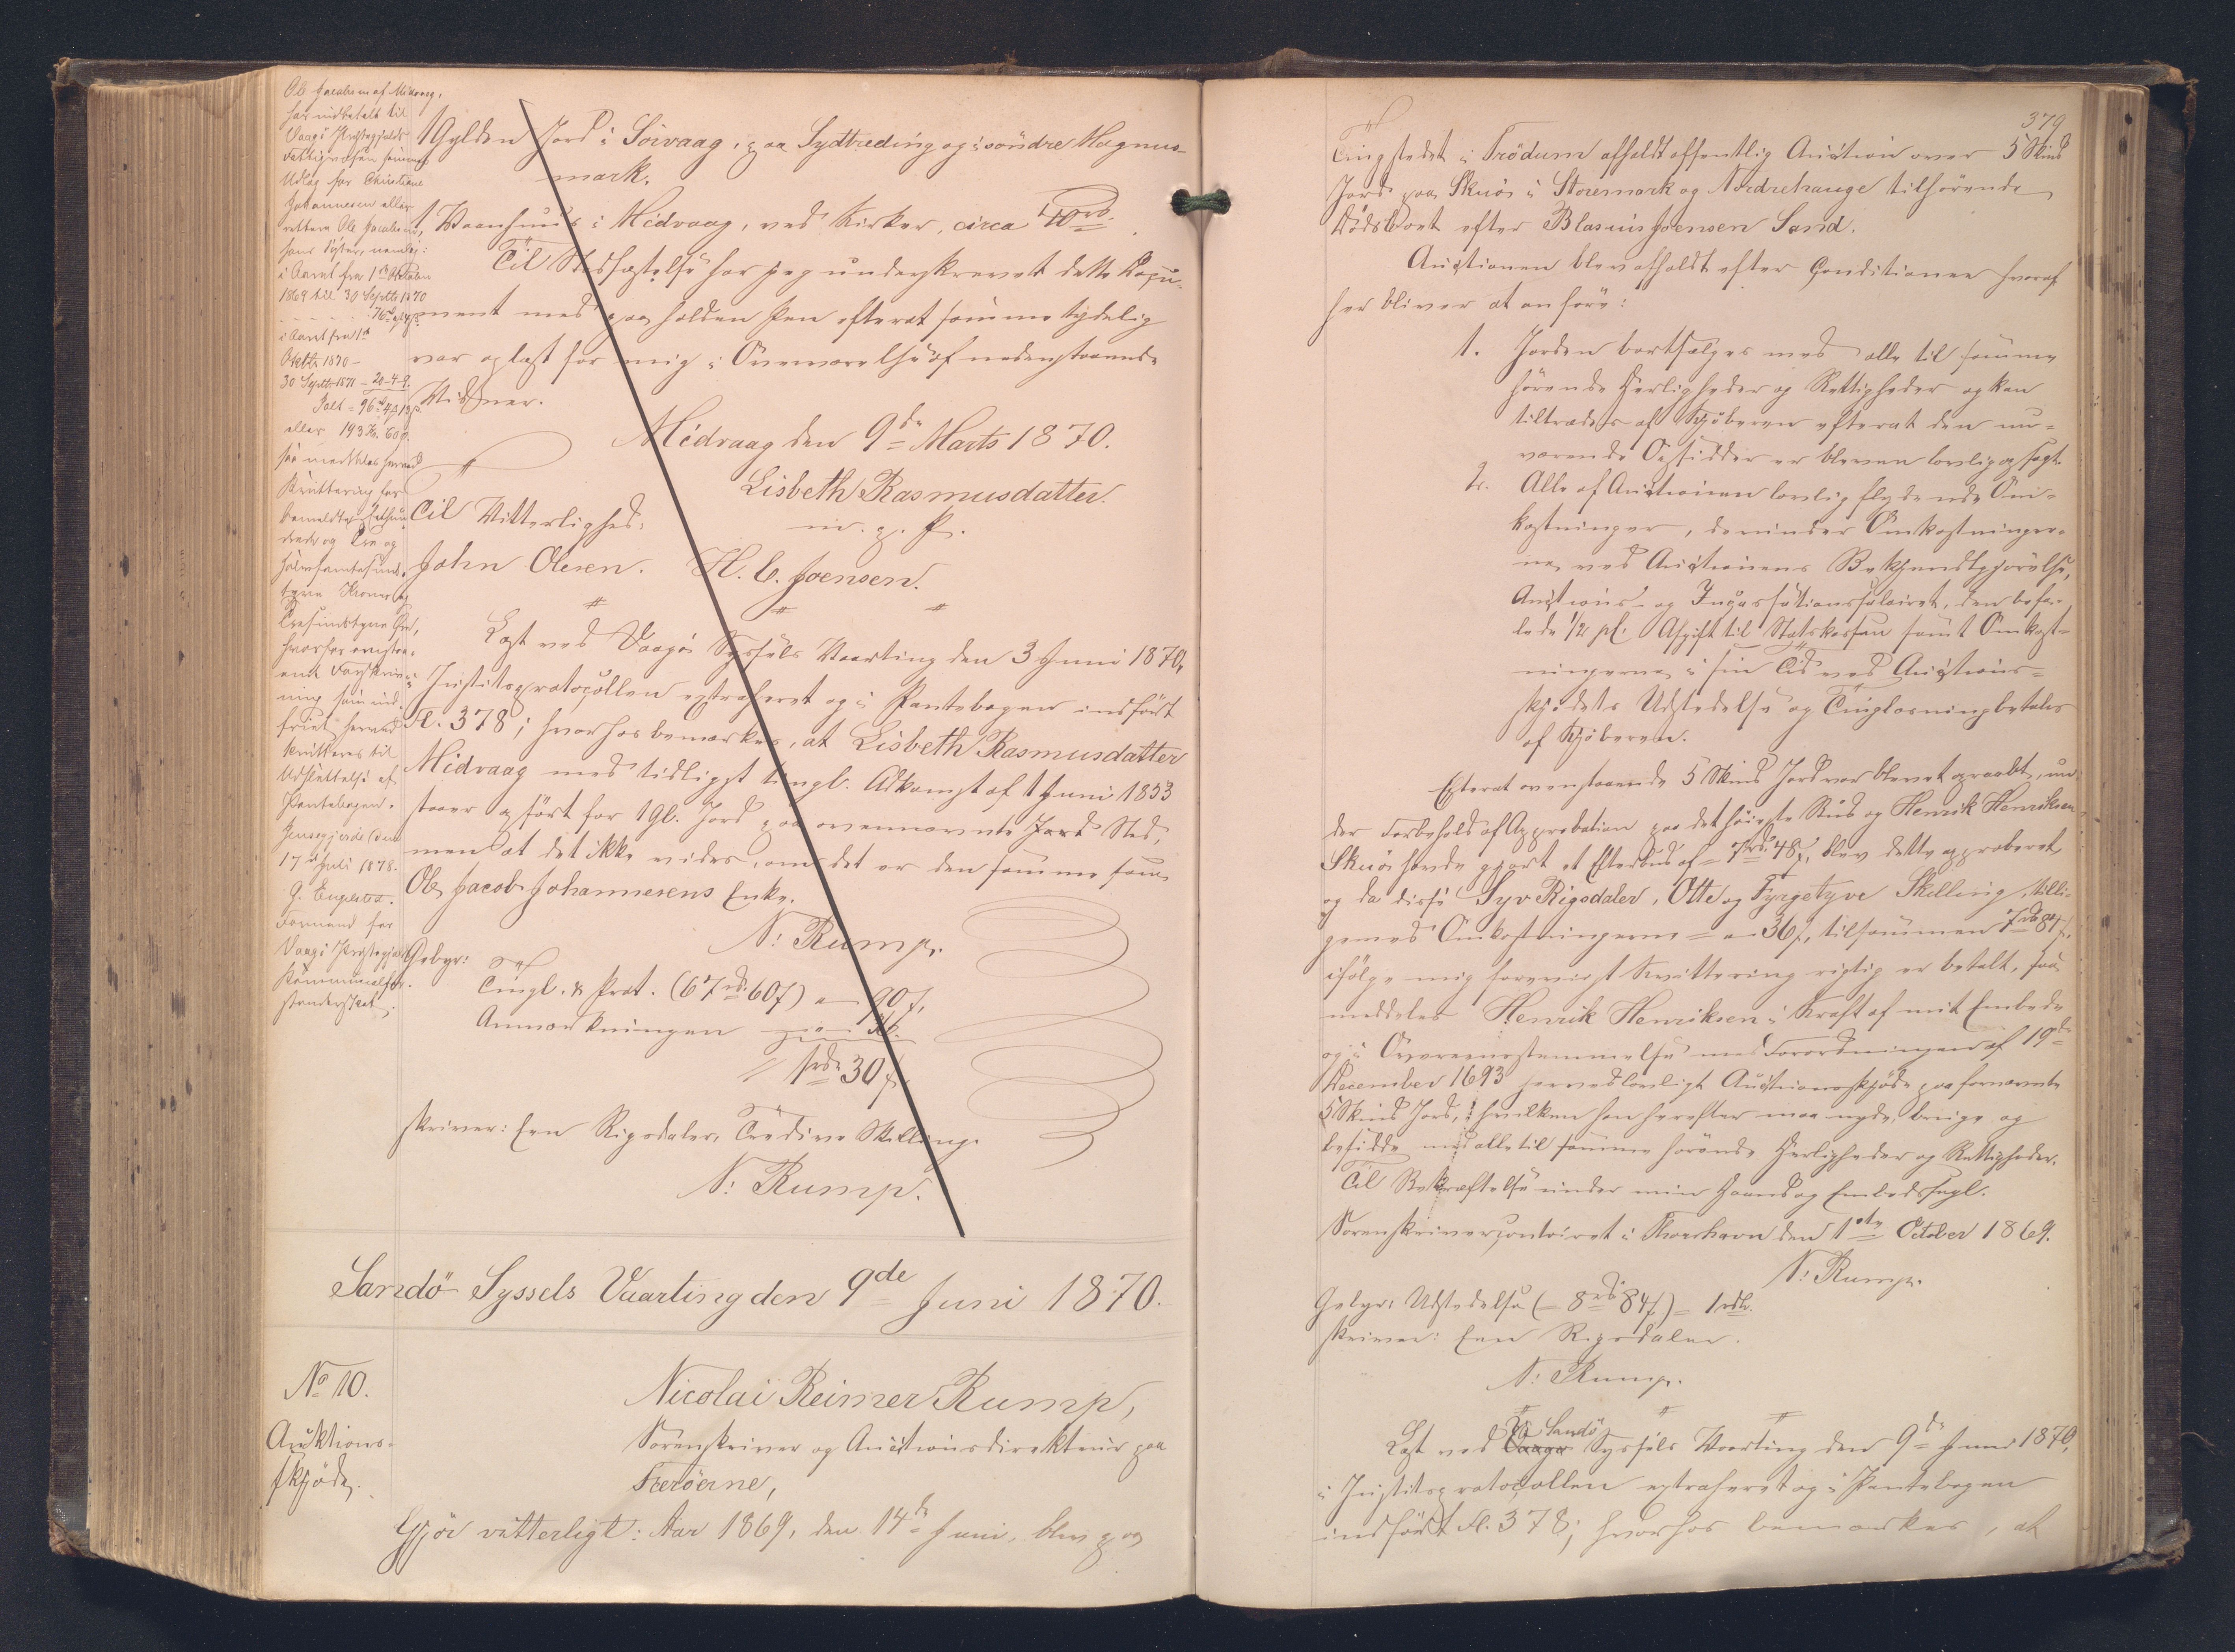 Ole Jacobsen af Midvaag,
har indbetalt til
Vaagø Præstegjelds
Fattigvæsen samme
Udlæg for Christiane
Johannesen eller
rettere Ole Jacobsen,
hans Søster, nemlig:
i Aaret fra 1ste Oktober
1869 til 30 Septbr 1870
i Aaret fra 1ste
Oktbr 1870 –
30 Septbr 1871 – 20-4-9.
Ialt = 96rd 4
eller 193 Kr. 60 Ø.
saa meddeles herved
Kvittering for
bemeldte Eethun-
drede og Tre og
halvfemtesinds-
tyve Kroner og
Tresindstyve Øre,
hvorfor ovenstaa-
ende Forskriv-
ning som ind-
friet herved
kvitteres til
Udslettelse af
Pantebogen.
Jensagjerde den
17de Juli 1878.
Formand for
Vaagø Præstegjelds
Kommunalfor-
standerskab.
1 Gylden Jord i Sørvaag, paa Sydtreding og i søndre Magnus-
mark.
1 Vaanhuus i Midvaag, ved Kirken, circa 40rd.
Til Stadfæstelse har jeg underskrevet dette Docu-
ment med paaholden Pen efterat samme tydelig
var oplæst for mig i Overværelse af nedenstaaende
Vidner.
Midvaag den 9de Marts 1870.
Lisbeth Rasmusdatter
m. p. P.
Til Vitterlighed:
John Olesen. H. C. Joensen.
Læst ved Vaagø Syssels Vaarting den 3 Juni 1870,
i Justitsprotocollen extraheret og i Pantebogen indført
Fl. 378; hvorhos bemærkes, at Lisbeth Rasmusdatter
Midvaag med tidligst tingl. Adkomst af 1 Juni 1853
staaer opført for 1 Gl. Jord paa ovennævnte Jord Sted,
men at det ikke vides, om det er den samme som
Ole Jacob Johannesens Enke.
N: Rump.
Gebyr:
Tingl. & Prot. (67rd 60ß) = 90ß,
Anmærkningen
1rd 30ß
skriver: Een Rigsdaler, Tredive Skilling.
N: Rump.
Sandø Syssels Vaarting den 9de Juni 1870.
No 10.
Auktions-
skjøde.
Nicolai Reimer Rump,
Sorenskriver og Auctionsdirekteur paa
Færøerne,
Gjør vitterligt: Aar 1869, den 14de Juni, blev paa
379
Tingstedet i Trødum afholdt offentlig Auction over 5 Skind
Jord paa Skuø i Storemark og Nordrehauge tilhørende
Dødsboet efter Blasius Joensen Sand.
Auctionen blev afholdt efter Conditioner hvoraf
her bliver at anføre:
1. Jorden bortsælges med alle til samme
hørende Herligheder og Rettigheder og kan
tiltrædes af Kjøberen efterat den nu-
værende Opsidder er bleven lovlig opsagt.
2. Alle af Auctionen lovlig flydende Om-
kostninger, derunder Omkostninger-
ne ved Auctionens Bekjendtgjørelse,
Auctions- og Incassationssalairet, den befa-
lede 1/2 pC. Afgift til Statskassen samt Omkost-
ningerne i sin Tid ved Auctions-
skjødets Udstedelse og Tinglæsning betales
af Kjøberen.
Efterat ovenstaaende 5 Skind Jord var blevet opraabt, un-
der Forbehold af Approbation paa det høieste Bud og Henrik Henriksen
Skuø havde gjort et Efterbud af = 7rd 48ß, blev dette approberet,
og da disse Syv Rigsdaler, Otte og Fyrgetyve Skilling tilli-
gemed Omkostningerne = 1rd 36ß, tilsammen
ifølge mig foreviist Kvittering rigtig er betalt, saa
meddeles Henrik Henriksen i Kraft af mit Embede
og i Overeensstemmelse med Forordningen af 19de
December 1693 herved lovligt Auctionsskjøde paa fornævnte
5 Skind Jord, hvilken han herefter maa nyde, bruge og
besidde med alle til samme hørende Herligheder og Rettigheder.
Til Bekræftelse under min Haand og Embedssegl.
Sorenskrivercontoiret i Thorshavn den 1ste October 1869.
N: Rump.
Gebyr: Udstedelse (= 8rd 84ß) = 1rdlr.
skriver: Een Rigsdaler.
N: Rump.
Sandø
Læst ved Vaagø Syssels Vaarting den 9de Juni 1870,
i Justitsprotocollen extraheret og i Pantebogen
indført Fl. 378; hvorhos bemærkes, at